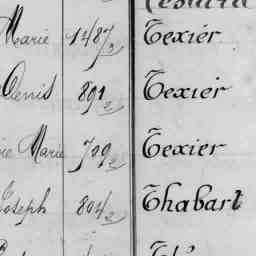 Marie 1487/2 Texier
Denis 891/2 Texier
Marie 729/2 Texier
Joseph 804/2 Thabart